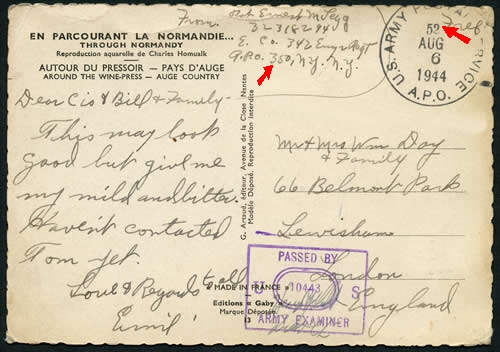 EN PARCOURANT LA NORMANDIE...
THROUGH NORMANDY
Reproduction aquarelle de Charles Homualk
AUTOUR DU PRESSOIR — PAYS D'AUGE
AROUND THE WINE-PRESS - AUGE COUNTRY
From
Ernest
E. Co. 342 Engr Regt
A.P.O. 350, N.Y. N.Y.
U.S. ARMY
52
AUG
6
1944
A.P.O.
Free
Dear Cis & Bill & Family -
This may look
good but give me
my mild and bitter.
Haven't contacted
Tom yet.
Love & Regards to all
Emil
G. Artaud, éditeur, Avenue de la Close Nantes
Modèle Déposé. Reproduction interdite
Mr & Mrs Wm Day
& Family
66 Belmont Park
Lewisham
London
England
PASSED BY
U 10443 S
ARMY EXAMINER
MADE IN FRANCE
Editions « Gaby »
Marque Déposée
13